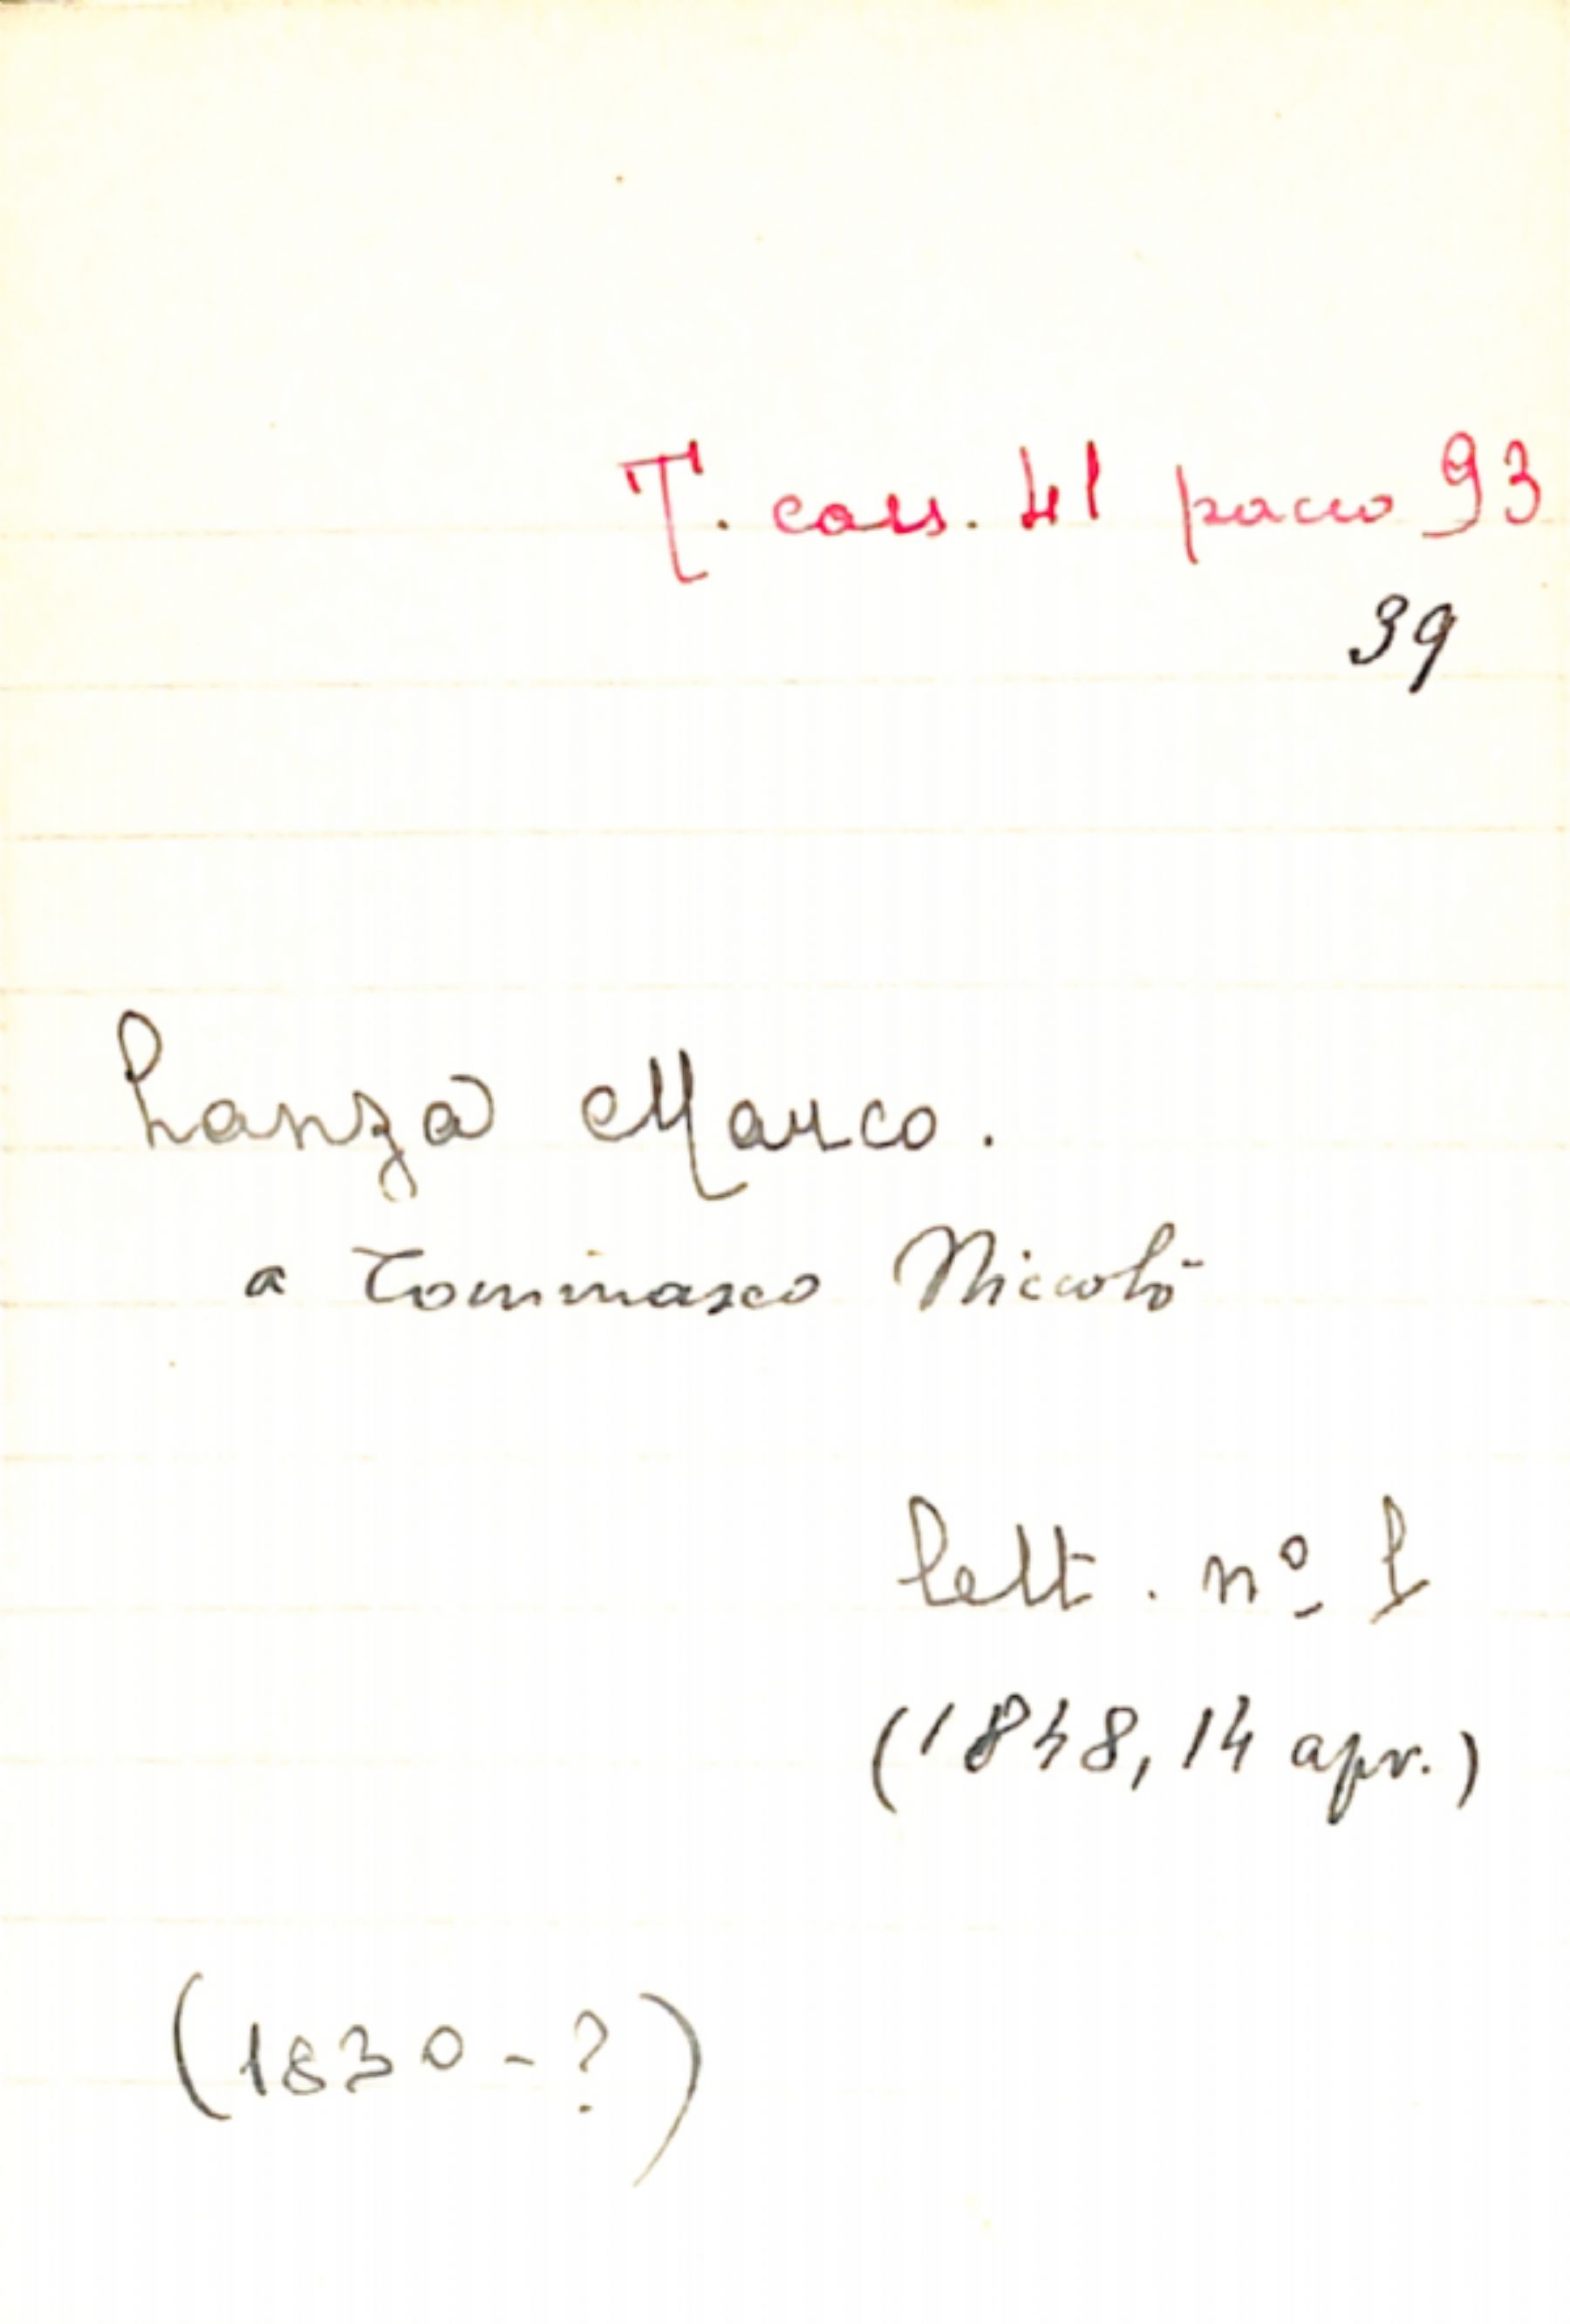 T. cass. 41 pacco 93
39
Lanza Marco.
a Tommaseo Niccolò
lett. nº 1
(1848, 14 apr.)
(1830-?)